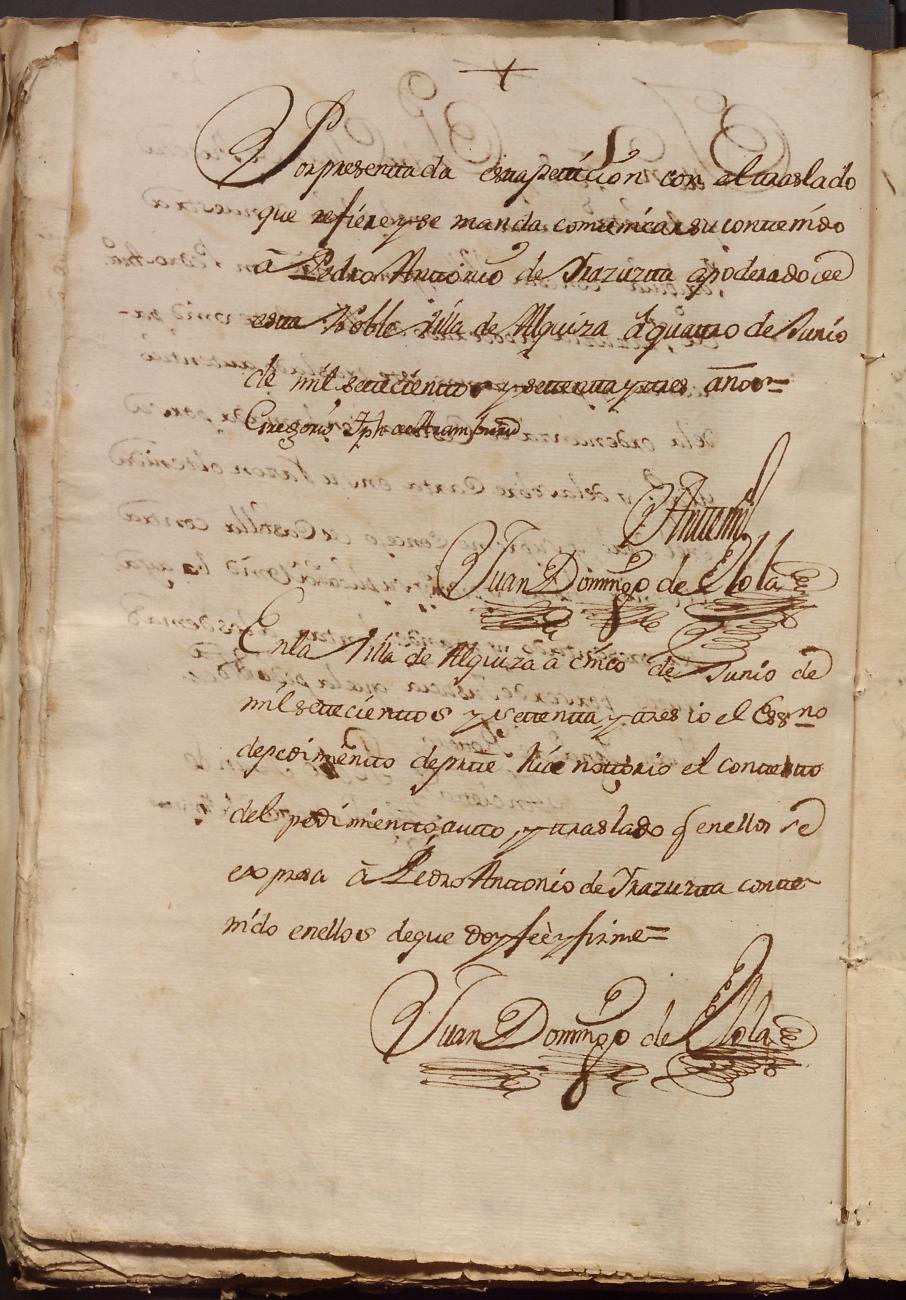 +
Por presentada esta peticion con el traslado
que refiere y se manda comunicar su contenido
à Pedro Antonio de Yrazuzta apoderado de
esta Noble Villa de Alquiza à quatro de Junio
de mil settecientos y settenta y tres años=
Gregorio Jph de Aramburu
Ante mi
Juan Domingo de Elola
En la Villa de Alquiza à cinco de Junio de
mil settecientos y settenta y tres io el Essno
de pedimento de parte hice nottorio el contexto
del pedimiento auto, y traslado q en ellos se
expresa à Pedro Antonio de Yrazuzta conte
nido en ellos de que doy feè y firme=
Juan Domingo de Elola